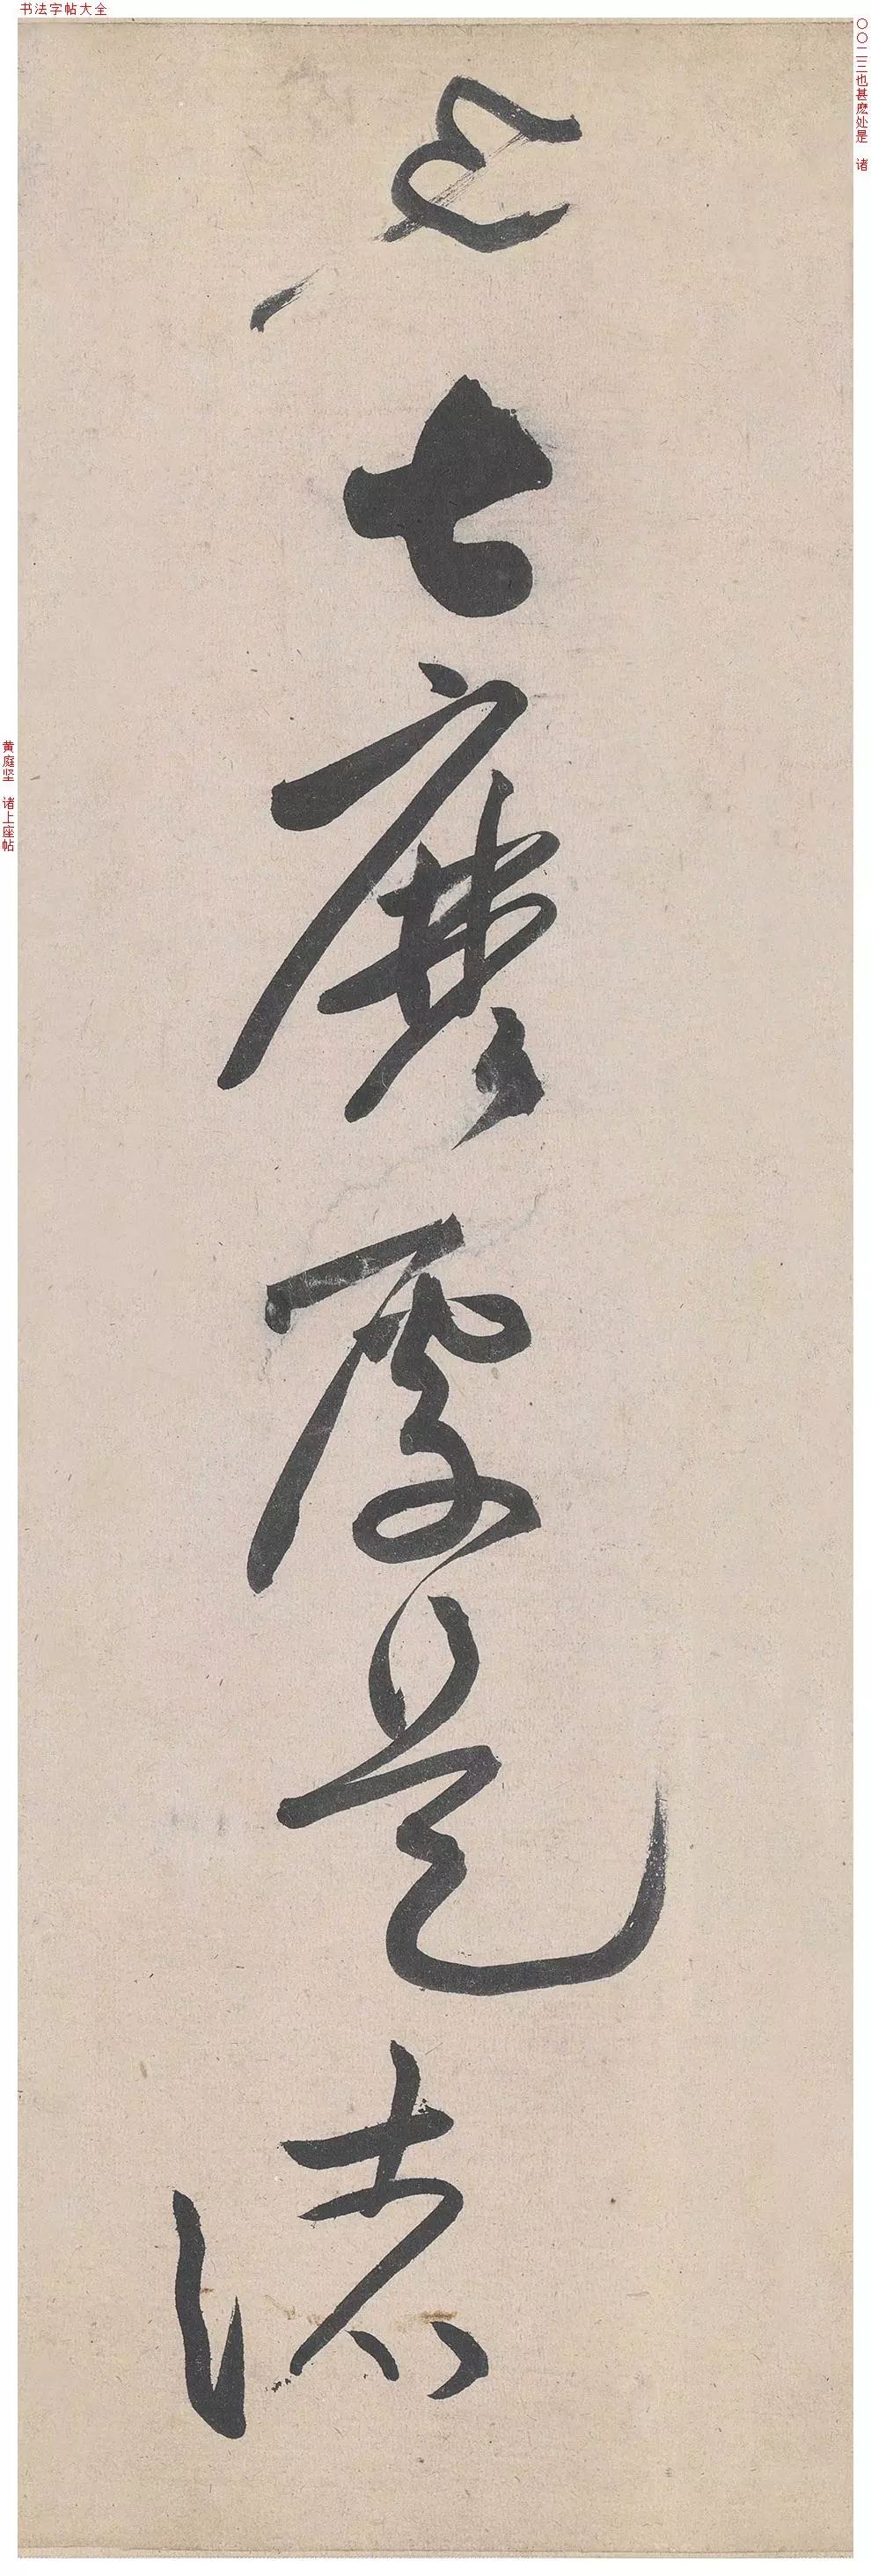 书法字帖大全
〇〇二三也甚麽处是 诸
也甚麽處是諸
黄庭坚 诸上座帖